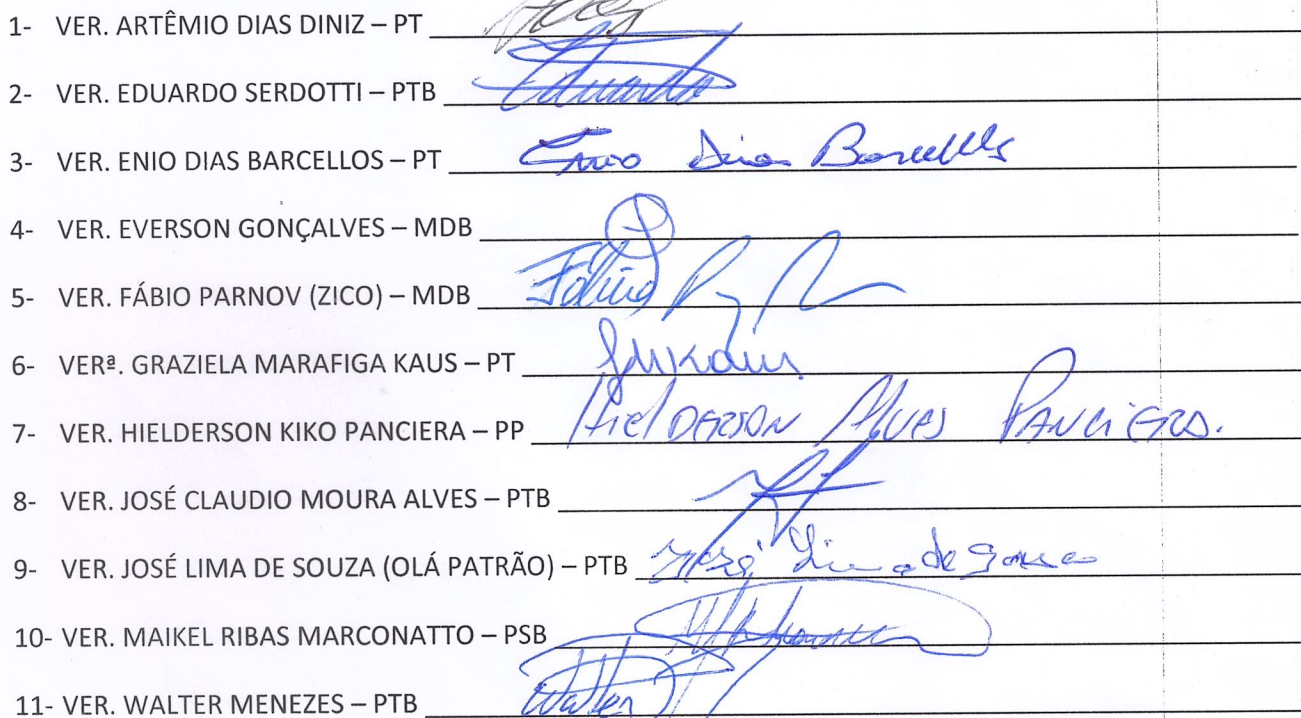 1- VER. ARTÊMIO DIAS DINIZ – PT
2- VER. EDUARDO SERDOTTI – PTB Eduardo
3- VER. ENIO DIAS BARCELLOS – PT Enio Dias Barcellos
4- VER. EVERSON GONÇALVES – MDB
5- VER. FÁBIO PARNOV (ZICO) – MDB Fábio
6- VERª. GRAZIELA MARAFIGA KAUS – PT GMKaus
7- VER. HIELDERSON KIKO PANCIERA – PP HielDERSON Alves PANCIERA.
8- VER. JOSÉ CLAUDIO MOURA ALVES – PTB
9- VER. JOSÉ LIMA DE SOUZA (OLÁ PATRÃO) – PTB José Lima de Souza
10- VER. MAIKEL RIBAS MARCONATTO – PSB
11- VER. WALTER MENEZES – PTB Walter